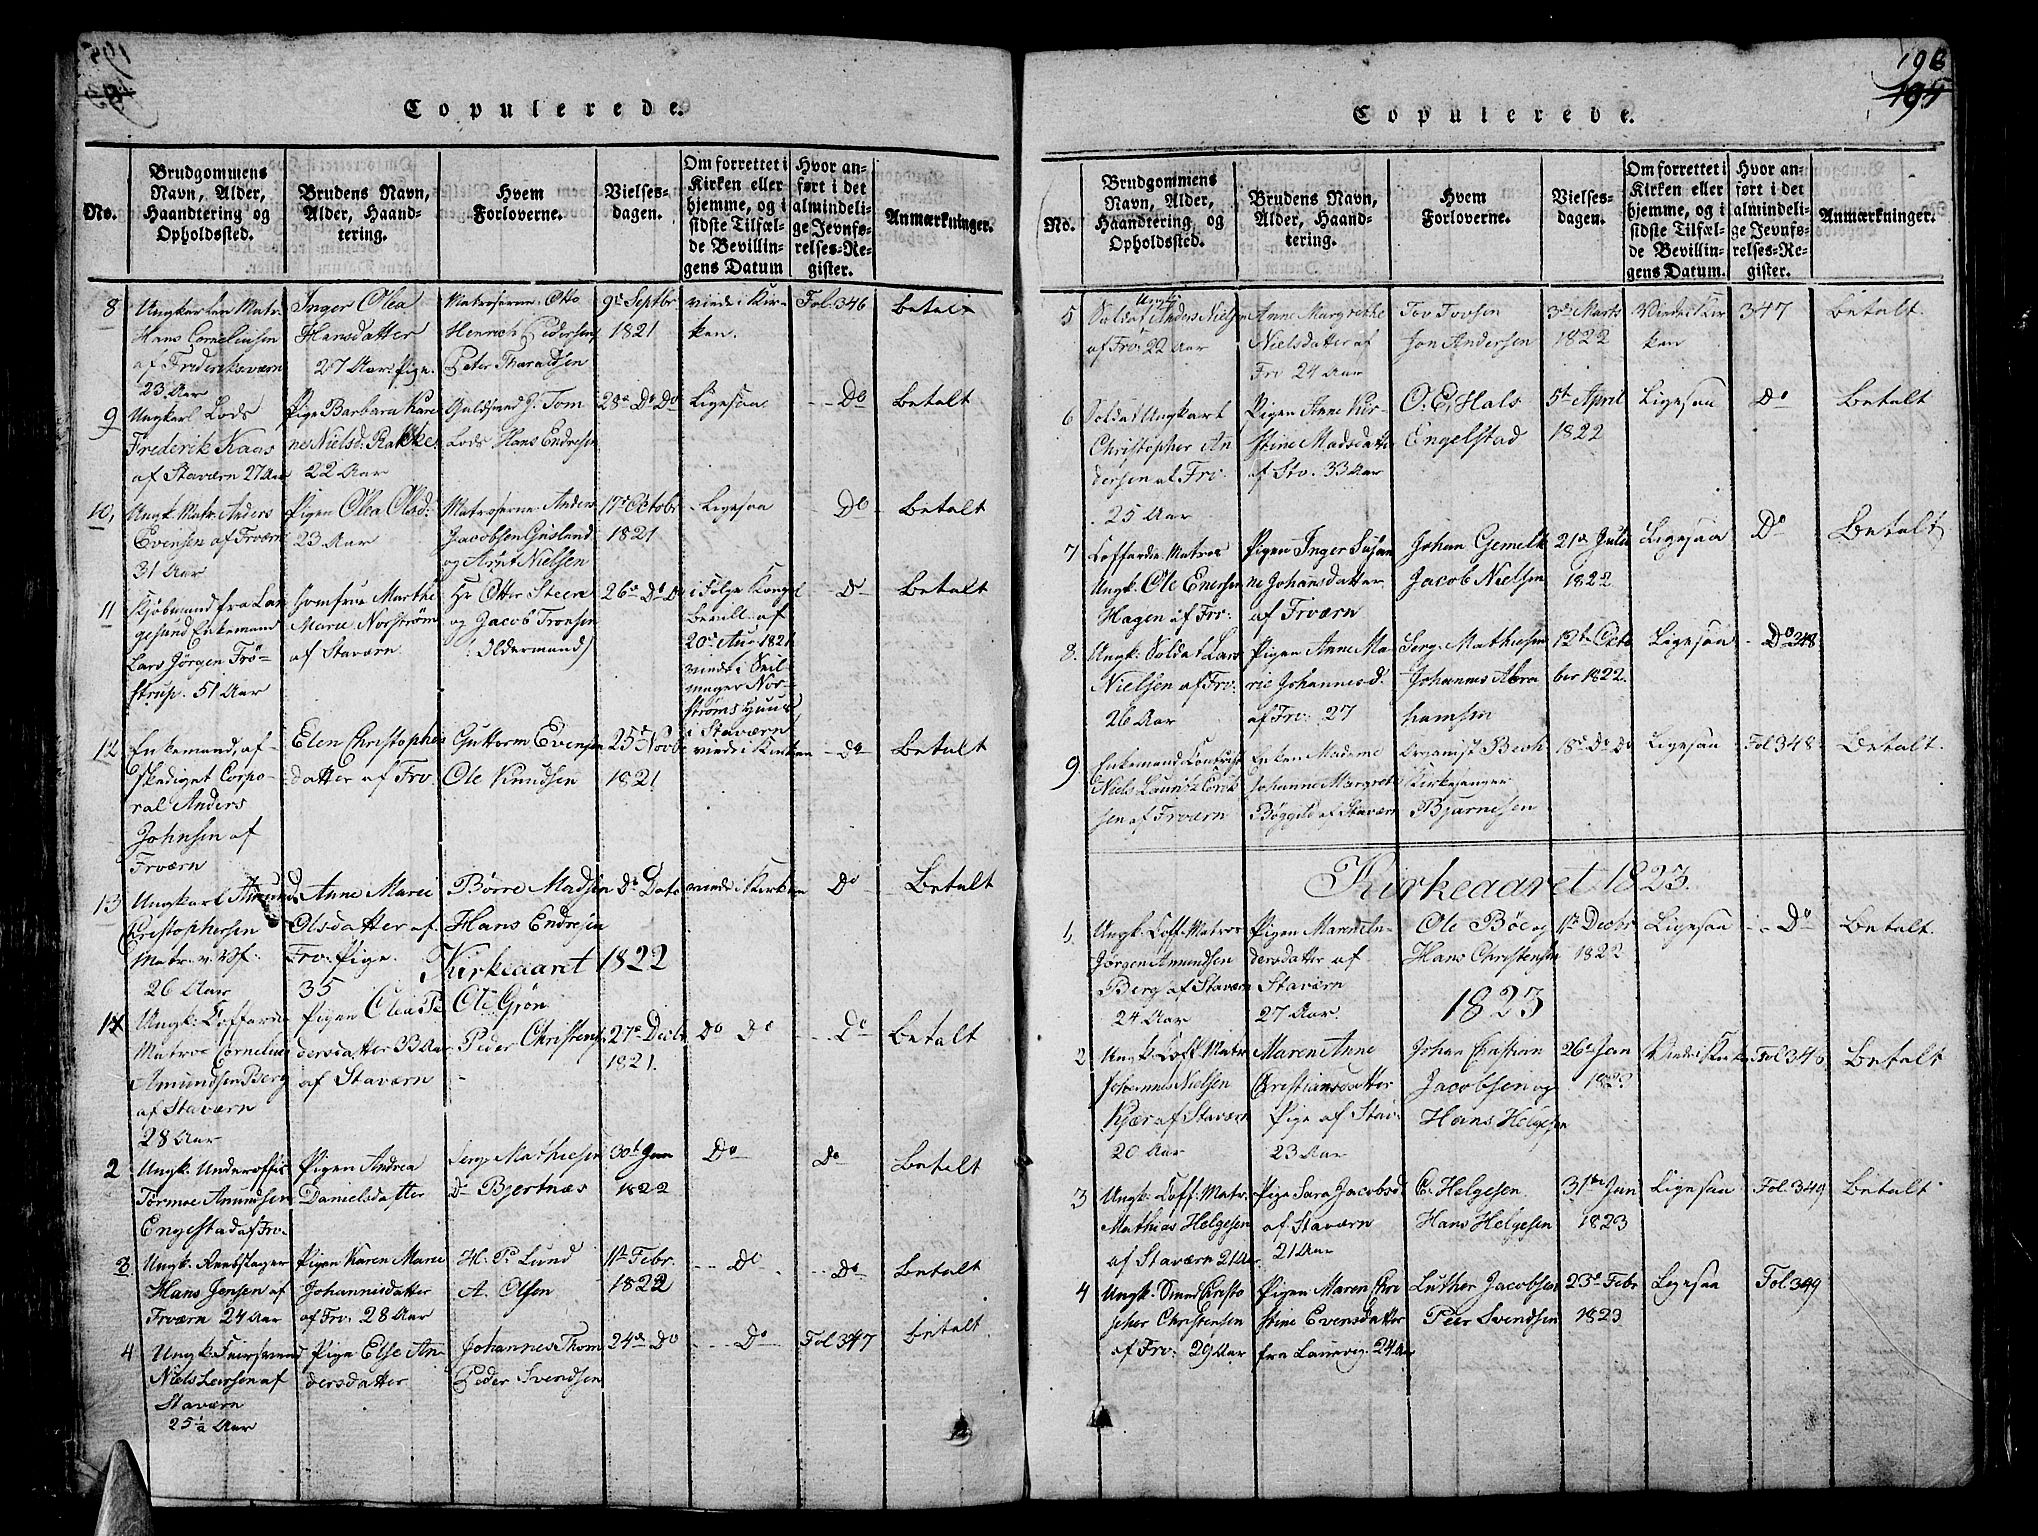 Copulerede.
No.
Brudgommens
Navn, Alder,
Haandtering og
Opholdssted.
Brudens Navn,
Alder, Haand-
tering.
Hvem
Forloverne.
Vielses-
dagen.
Om forrettet i
Kirken eller
hjemme, og i
sidste Tilfæl-
de Bevillin-
gens Datum
Hvor an-
ført i det
almindeli-
ge Jevnfø-
relses-Re-
gister.
Anmærkninger.
8
Ungkarlen Matr.
Hans Corneliusen
af Frideriksværn
23 Aar
Inger Olea
Hansdatter
27 Aar Pige.
Matroserne Otto
Henrich Pedersen
Peter Tharaldsen
9de Septbr
1821
viede i Kir-
ken.
Fol. 346
Betalt
9
Ungkarl Lods
Frederik Kaas
af Staværn 27 Aar
Pige Barbara Kare
ne Nielsd: Rakke.
22 Aar
Guldsmed J. Tom
Lods Hans Endresen
28de Do Do
Ligesaa
Do
Betalt
10,
Ungk. Matr: Anders
Evensen af Frværn
31 Aar
Pigen Olea Olsd:
23 Aar
Matroserne Anders
Jacobsen Gusland
og Arnt Nielsen
17de Octobr
1821
Ligesaa
Do
Betalt
11
Kjøbmand fra Lan
gesund Enkemand
Lars Jörgen Trö-
strup. 51 Aar
Jomfrue Marthe
Marie Norström
af Staværn.
Hr Otter Steen
og Jacob Tronsen
Oldermand)
26de Do Do
i Følge Kongel
Bevill. af
20de Aug 1821
viede i Seil-
mager Nor-
ströms Huus
i Staværn
Do
Betalt
12
Enkemand, af-
skediget Corpo-
ral Anders
Johnsen af
Frværn
Elen Christophers
datter af Frv.
Guttorm Evensen
Ole Knudsen
25de Novb
1821
viede i Kirken
Do
Betalt
13
Ungkarl Amund
Cristophersen
Matr. v. Vf.
26 Aar
Anne Marie
Olsdatter af
Frv. Pige.
35
Börre Madsen
Hans Endresen
Do Dato
viede i Kirken
Do
Betalt
Kirkeaaret 1822
1
Ungk: Coffardie
Matroe Cornelius
Amundsen Berg
af Staværn
28 Aar
Pigen Olea Pe
dersdatter 33 Aar
af Staværn
Ole Grön
Peder Christensen
27de Decbr
1821.
Do Do
Do
Betalt
2
Ungk. Underoffic
Tormoe Amundsen
Engelstad af Frv.
Pigen Andrea
Danielsdatter
Serg Mathiesen
Do Bjertnæs
30te Jan
1822
Do
Do
Betalt
3
Hans Jensen af
Frværn 24 Aar
Pigen Karen Marie
Johannisdatter
af Frv. 28 Aar
H. P. Lund
A. Olsen
11te Febr.
1822
Do
Do
Betalt
4
Niels Larsen af
Staværn
25 1/2 Aar
Pige Else An-
dersdatter
Johannes Thom
Peder Svendsen
24de Do
Do
Fol. 347
Betalt.
196
195
Copulerede.
No.
Brudgommens
Navn, Alder,
Haandtering, og
Opholdssted.
Brudens Navn,
Alder, Haand-
tering.
Hvem
Forloverne.
Vielses-
dagen.
Om forrettet i
Kirken eller
hjemme, og i
sidste Tilfæl-
de Bevillin-
gens Datum.
Hvor an-
ført i det
almindeli-
ge Jevnfø-
relses-Re-
gister.
Anmærkninger.
5
Ungk:
Soldat Anders Nielsen
af Frv: 22 Aar
Anne Margrethe
Nielsdatter af
Frv 24 Aar
Tov Tovsen
Jon Andersen
3de Marts
1822
Viede i Kir
ken
347
Betalt.
6
Soldat Ungkarl
Christopher An
dersen af Frv.
25 Aar
Pigen Anne Kir
stine Madsdatter
af Stv. 33 Aar
O. E. Hals
Engelstad
5te April
1822
Ligesaa
Do
Betalt
7
Coffardie Matroe
Ungk. Ole Enersen
Hagen af Frv.
Pigen Inger Susan
ne Johansdatter
af Frværn
Johan Gemelk
Jacob Nielsen
21de Julii
1822
Ligesaa
Do
Betalt
8.
Ungk: Soldat Lars
Nielsen af Frv.
26 Aar
Pigen Anne Ma
rie Johannesd.
af Frv. 27
Serg. Mathiesen
Johannes Abra
hamsen
12te Octo
ber 1822.
Ligesaa
Do 348
Betalt
9.
Niels Lauritz
sen af Frværn
Enken Madame
Johanne Margrete
Böggild af Staværn
Organist Bech
Kirkesanger
Bjarnesen
18de Do Do
Ligesaa
Fol 348
Betalt.
Kirkeaaret 1823.
1.
Ungk. Coff. Matroe
Jørgen Amundsen
Berg af Staværn
24 Aar
Pigen Maren An-
dersdatter af
Staværn
27 Aar.
Ole Böe og
Hans Christensen
1te Decbr
1822
Ligesaa
Do
Betalt.
1823
2
Ungk. Coff. Matr.
Johannes Nielsen
Kjær af Staværn
20 Aar
Maren Anne
Christiansdatter
Pige af Stav.
23 Aar
Johan Christian
Jacobsen og
Hans Helgesen
26de Jan
1823
Viede i Kirken
Fol 346
Betalt
3
Ungk. Coff. Matr.
Mathias Helgesen
af Staværn 21 Aar
Pige Sara Jacobsd
af Staværn
21 Aar
C. Helgesen
Hans Helgesen
31te Jan
1823
Ligesaa
Fol. 349
Betalt
4
Ungk. Smed Cristo
pher Christensen
af Frv. 29 Aar
Pigen Maren Chri
stine Evensdatter
fra Laurvig. 24 Aar
Luther Jacobsen
Peer Svendsen
23de Febr
1823
Ligesaa
Fol. 349